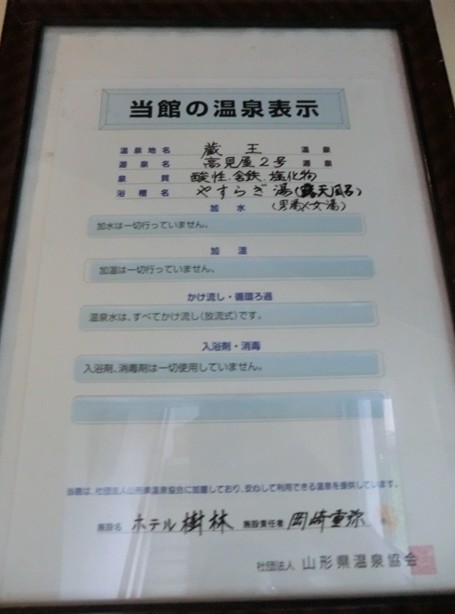 当館の温泉表示
温泉地名 蔵王 温泉
源泉名 高見屋2号 源泉
泉質 酸性・含鉄・塩化物
浴槽名 やすらぎ湯(露天風呂)
(男湯・女湯)
加水
加水は一切行っていません。
加温
加温は一切行っていません。
かけ流し・循環ろ過
温泉水は、すべてかけ流し(放流式)です。
入浴剤・消毒
入浴剤、消毒剤は一切使用していません。
当館は、社団法人山形県温泉協会に加盟しており、安心して利用できる温泉を提供しています。
施設名 ホテル樹林 施設責任者 岡崎重弥
社団法人 山形県温泉協会